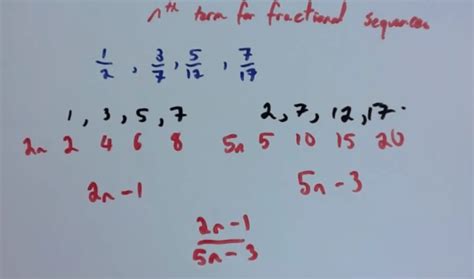 nth term for fractional sequences
1/2, 3/7, 5/12, 7/17
1, 3, 5, 7 2, 7, 12, 17.
2n 2 4 6 8 5n 5 10 15 20
2n-1 5n-3
2n-1
5n-3